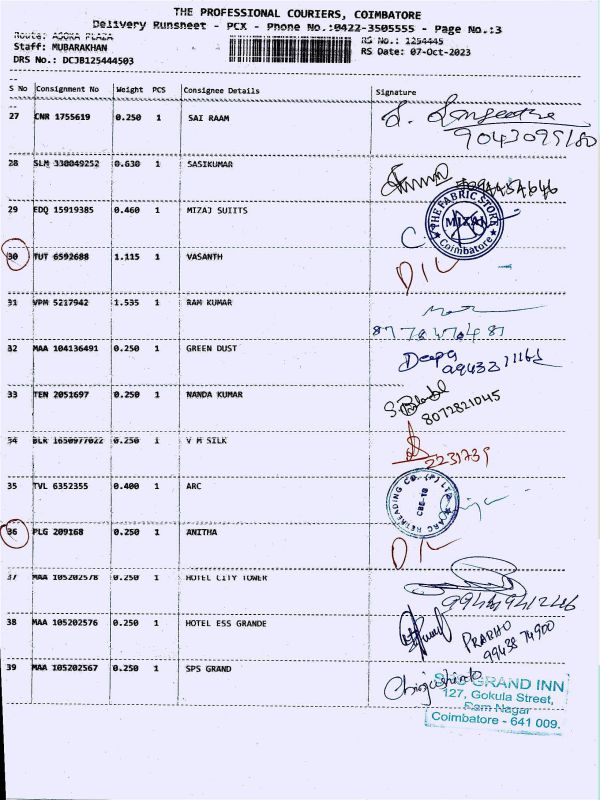 THE PROFESSIONAL COURIERS, COIMBATORE
Delivery Runsheet - PCX - Phone No.:0422-3505555 - Page No.:3
Route: ASOKA PLAZA
RS No.: 1254445
Staff: MUBARAKHAN
RS Date: 07-Oct-2023
DRS No.: DCJB125444503
S No Consignment No Weight PCS Consignee Details Signature
27 CNR 1755619 0.250 1 SAI RAAM
9043099180
28 SLM 330049252 0.630 1 SASIKUMAR
29 EDQ 15919385 0.460 1 MIZAJ SUIITS
THE FABRIC STORE
Coimbatore
30 TUT 6592688 1.115 1 VASANTH
D/L
31 VPM 5217942 1.535 1 RAM KUMAR
32 MAA 104136491 0.250 1 GREEN DUST
Deepa
33 TEN 2051697 0.250 1 NANDA KUMAR
8072821045
34 BLR 1650977022 0.250 1 V M SILK
2231739
35 TVL 6352355 0.400 1 ARC
ARC RETREADING CO. (P) LTD
CBE-18
36 PLG 209168 0.250 1 ANITHA
D/L
37 MAA 105202578 0.250 1 HOTEL CITY TOWER
38 MAA 105202576 0.250 1 HOTEL ESS GRANDE
PRABHO
99438 74900
39 MAA 105202567 0.250 1 SPS GRAND
GRAND INN
127, Gokula Street,
Ram Nagar
Coimbatore - 641 009.